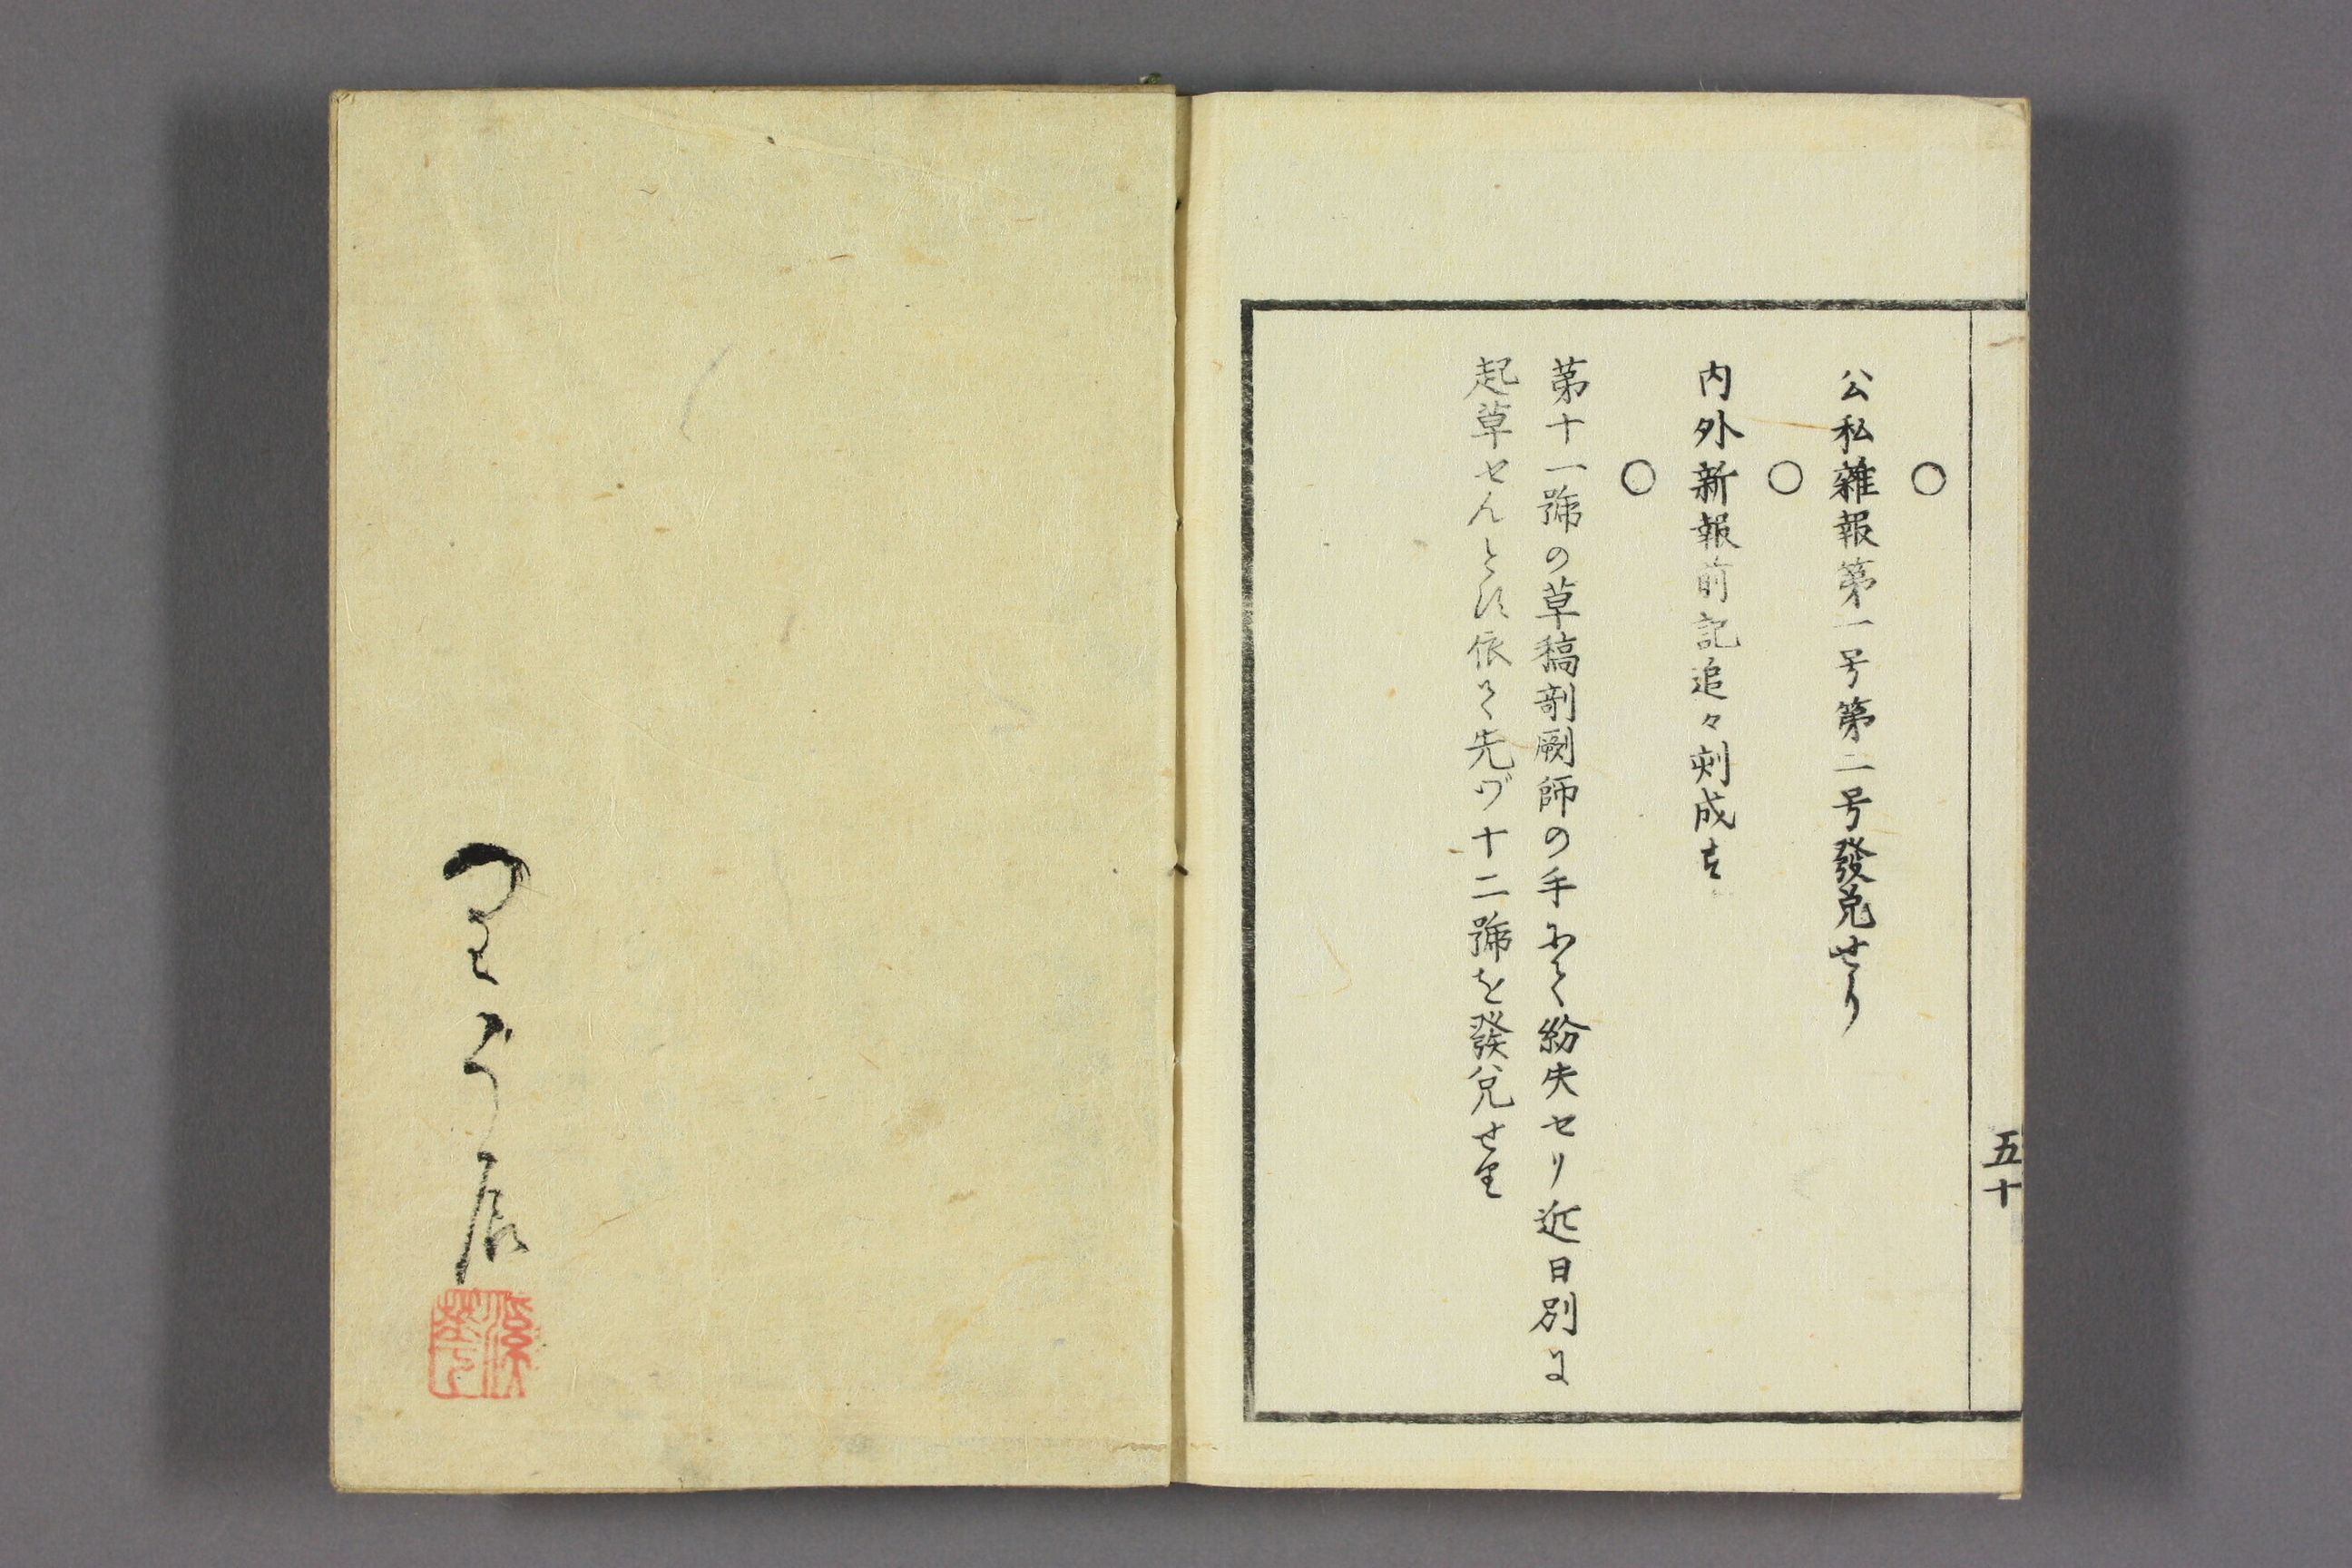 五十
○
公私雜報第一号第二号發兌せり
○
内外新報前記追々刻成す
○
第十一號の草稿剞劂師の手にて紛失セリ近日別に
起草せんとす依て先ヅ十二號を發兌せり